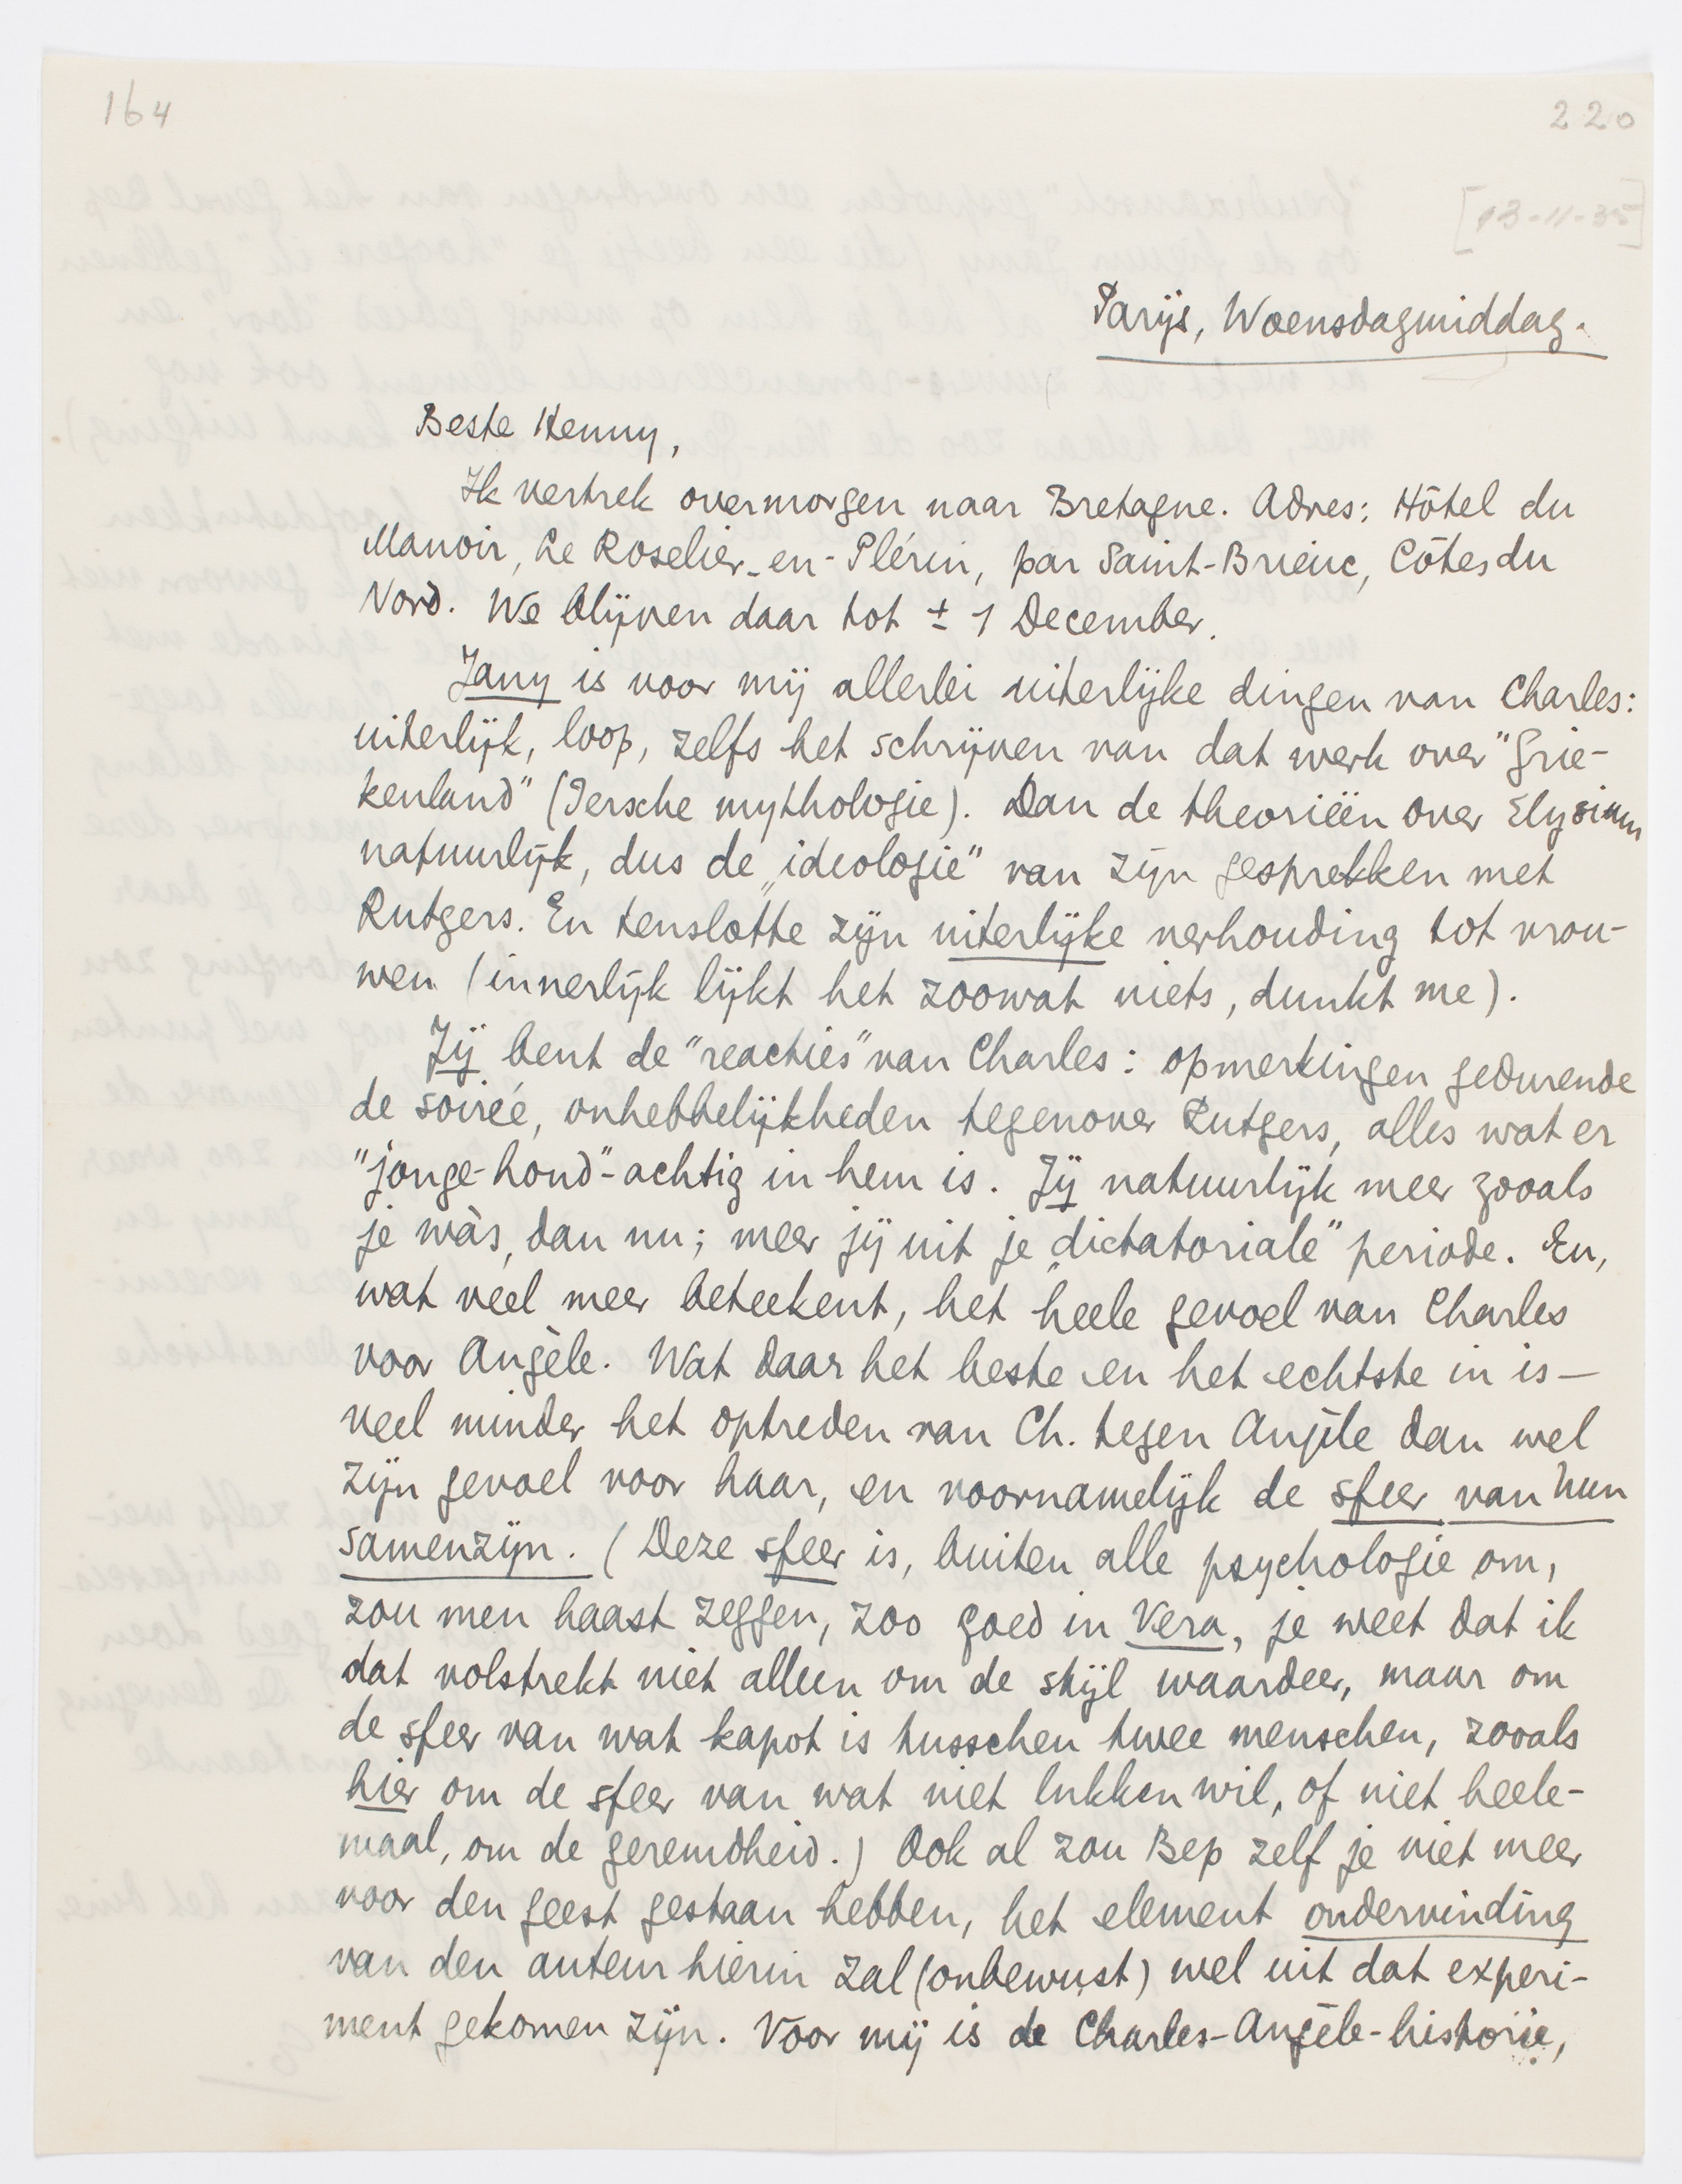 164
220
[13-11-35]
Parijs, Woensdagmiddag.
Beste Henny,
Ik vertrek overmorgen naar Bretagne. Adres: Hôtel du
Manoir, Le Roselier-en-Plérin, par Saint-Brieuc, Côtes du
Nord. We blijven daar tot ± 1 December.
Jany is voor mij allerlei uiterlijke dingen van Charles:
uiterlijk, loop, zelfs het schrijven van dat werk over "Grie-
kenland" (Iersche mythologie). Dan de theorieën over Elysium
natuurlijk, dus de „ideologie" van zijn gesprekken met
Rutgers. En tenslotte zijn uiterlijke verhouding tot vrou-
wen (innerlijk lijkt het zoowat niets, dunkt me).
Jij bent de "reacties" van Charles: opmerkingen gedurende
de soirée, onhebbelijkheden tegenover Rutgers, alles wat er
"jonge-hond"-achtig in hem is. Jij natuurlijk meer zooals
je wàs, dan nu; meer jij uit je „dictatoriale" periode. En,
wat veel meer beteekent, het heele gevoel van Charles
voor Angèle. Wat daar het beste en het echtste in is—
veel minder het optreden van Ch. tegen Angèle dan wel
zijn gevoel voor haar, en voornamelijk de sfeer van hun
samenzijn. (Deze sfeer is, buiten alle psychologie om,
zou men haast zeggen, zoo goed in Vera, je weet dat ik
dat volstrekt niet alleen om de stijl waardeer, maar om
de sfeer van wat kapot is tusschen twee menschen, zooals
hier om de sfeer van wat niet lukken wil, of niet heele-
maal, om de geremdheid.) Ook al zou Bep zelf je niet meer
voor den geest gestaan hebben, het element ondervinding
van den auteur hierin zal (onbewust) wel uit dat experi-
ment gekomen zijn. Voor mij is de Charles-Angèle-historie,